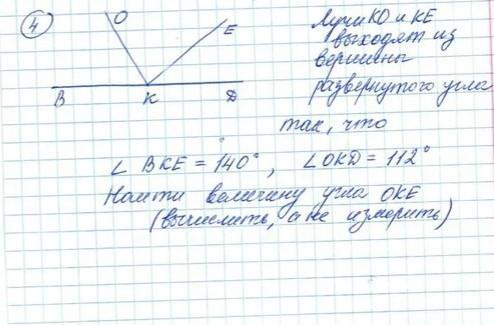 4
O
E
B
K
D
Лучи KO и KE
выходят из
вершины
развернутого угла
так, что
∠ BKE = 140°, ∠OKD = 112°
Найти величину угла OKE
(вычислить, а не измерить)